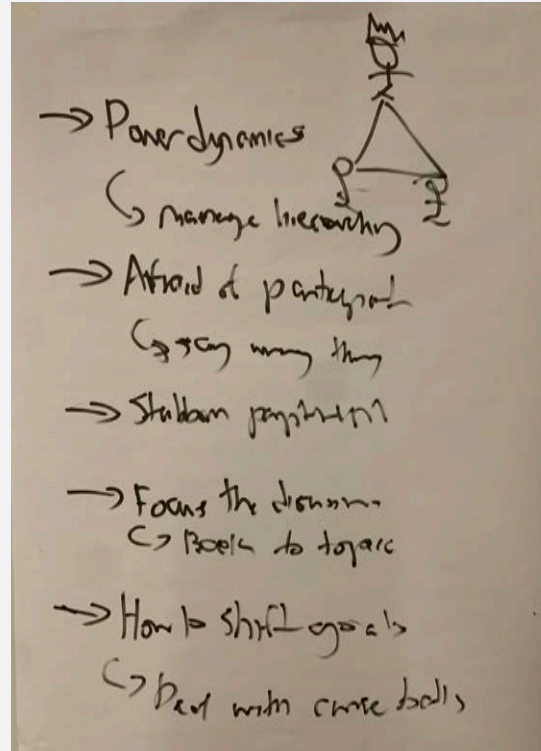 → Power dynamics
↳ manage hierarchy
→ Afraid of participant
↳ say wrong thing
→ Stubborn
→ Focus the
↳ Back to topic
→ How to shift goals
↳ Deal with curve balls